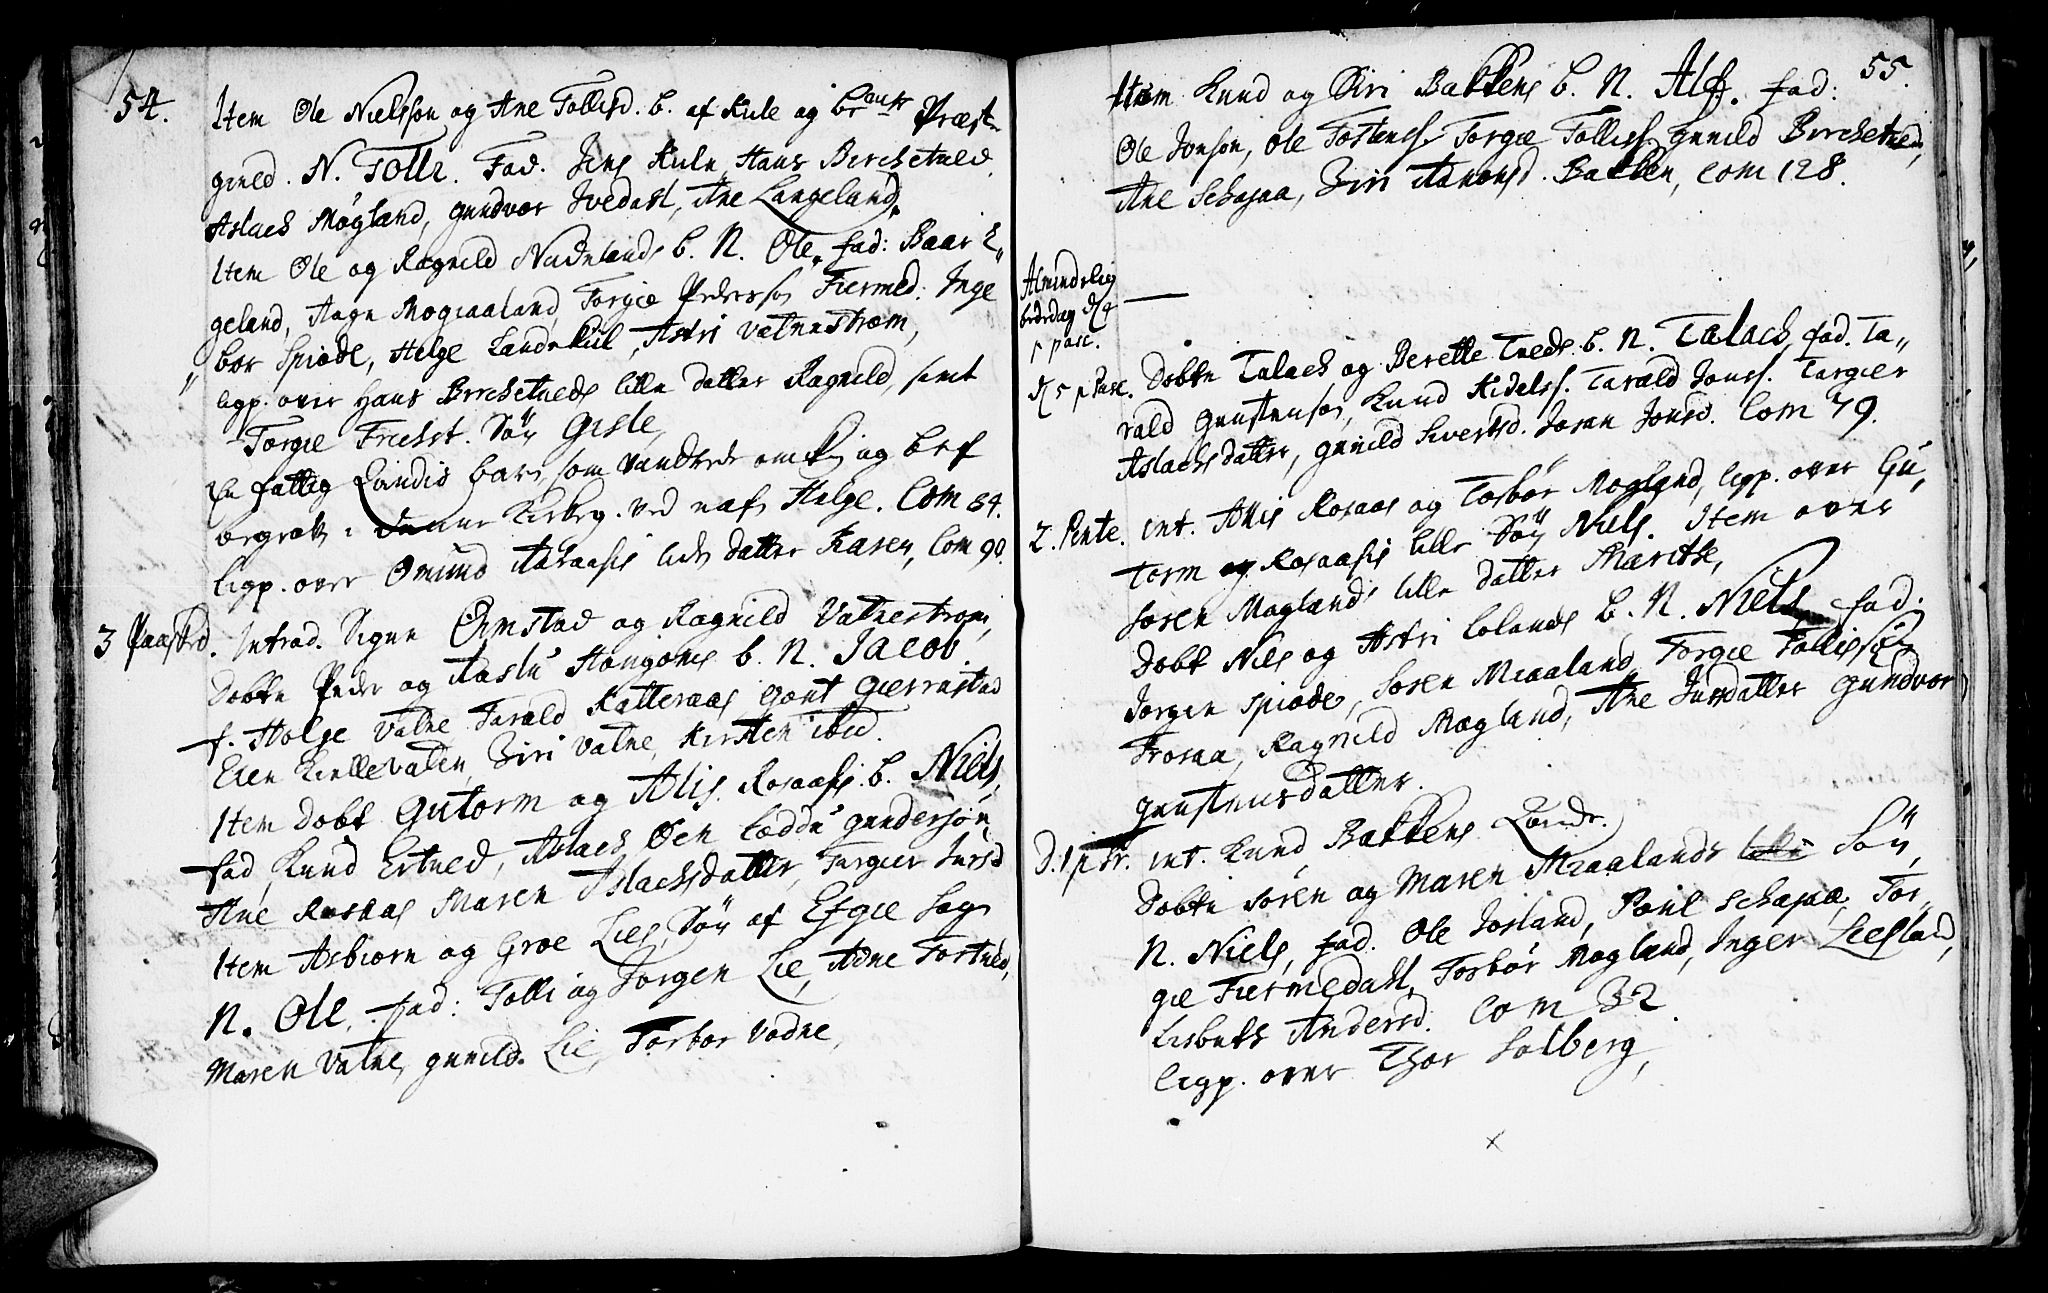 54.
Item Ole Nielsson og Ane Tollisd. b. af Kule og Præst
gield. N. Tolle. Fad. Jens Kule, Hans Birchetved,
Aslach Møgland, gundvor Ivedal, Ane Langeland.
Item Ole og Ragnild Nadelands b. N. Ole. fad: Baar E„
geland, Aagn Mogiaaland, Torgie Pederss. Fiermed: Inge
bor Spiøde, Helge Landskiil, Astri Vatnestrøm,
ligp. over Hans Birchetveds lille datter Ragnild, samt
Torgie Frichst. Søn Gisle,
En fattig Qvindis barn, som vandrede omkr: og blef
begravet i denne Kirkeg. ved nafn Helge. Com 84.
ligp. over Omund Aabaasis lide datter Karen, Com 90.
3 Paaskd. Introd. Signe Ørmstad og Ragnild Vatnestrøm,
Dobte Peder og Aaslu Haugoms b. N. Jacob.
f. Holge Vatne Tarald Katteraas Gont Gierrustad
Elen Kirllevaten, Siri Vatne, Kirsten ibid.
Item Dobt Gutorm og Alis. Rosaasis b. Niels,
fad, Knud Ertved, Aslach Øen Loddu gundersøn,
Ane Rosaas Maren Aslachsdatter, Torgier Jursd
Item Asbiørn og Groe Lies, Søn af Esgie Sogn
N. Ole, fad: Tolli og Jorgen Lie, Adne Tortved,
Maren Vatne, gunild. Lie, Torbor Vadne,
55.
Item Knud og Siri Bakkens b. N. Alf. fad:
Ole Jonson, Ole Tostenss. Torgie Tolliss. gunild Birchetved,
Ane Schajaa, Siri Aanonsd. Bakken, Com 128.
Almindelig
bededag
p pasc.
D 5 p Pasc. Dobte Talach og Berette Tveds b. N. Talach, fad. Ta„
rald Gunstensøn, Knud Kidelss. Tarald Jonss. Targier
Aslachsdatter, gunild Siverts d. Joran Jonsd. Com 79.
2. Pente. int. Allis Rosaas og Torbor Mogland, ligp. over Gu„
torm og Rosaasis lille Søn Niels. Item over
Soren Moglands lille datter Marithe,
Dobt Nils og Astri Lolands b. N. Niels, fad.
Jorgen Spiøde, Soren Miaaland, Torgie Tollissøn
Frosaa, Ragnild Mogland, Ane Jursdatter gundvor
gunstensdatter.
D. 1 p Tr. int. Knud Bakkens Qvinde.
Dobte Søren og Maren Miaalands Søn,
N. Niels, fad. Ole Josland, Poul Schajaa, Tor„
gie Fiermedal, Torbor Mogland, Inger Leesland,
Lisbeth Andersd. Com 32.
ligp. over Thor Solberg,